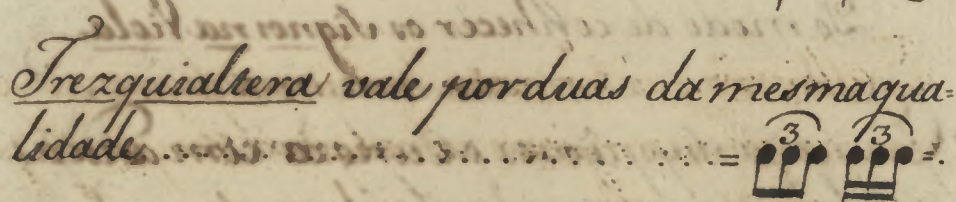 Trezquialtera vale porduas damesmaqua=
lidade..............................= 3 3 =.